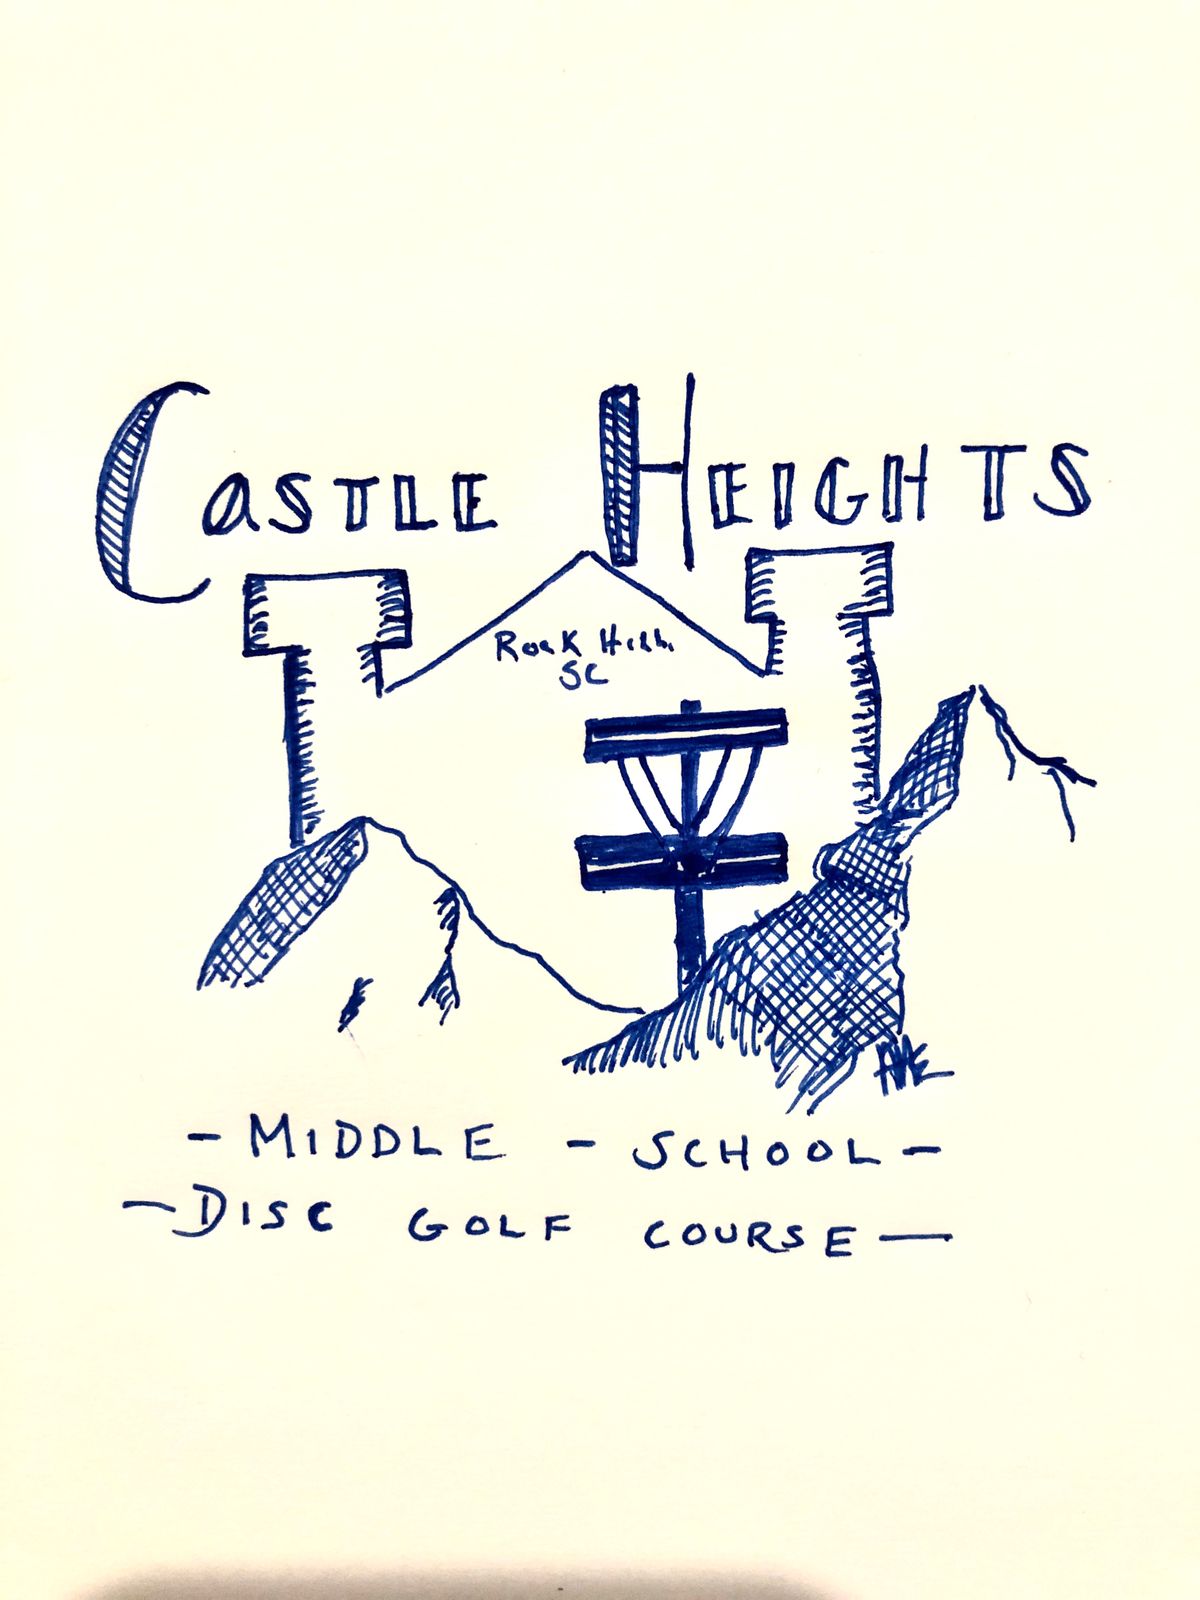 CASTLE HEIGHTS
Rock Hill,
SC
- MIDDLE - SCHOOL -
- DISC GOLF COURSE -